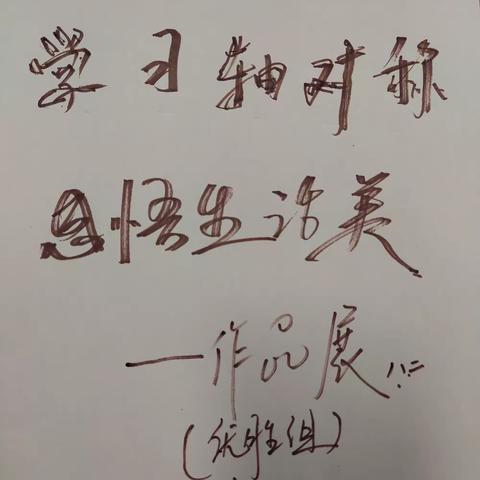 学习轴对称
感悟生活美
—作品展 八.二
(优胜组)